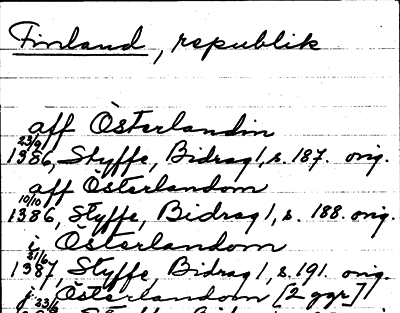 Finland, republik
aff Österlandin
23/9 1386, Styffe, Bidrag 1, s. 187. orig.
aff Österlandom
10/10 1386, Styffe, Bidrag 1, s. 188. orig.
i Österlandom
21/6 1387, Styffe, Bidrag 1, s. 191. orig.
j Österlandom [2 ggr]
23/